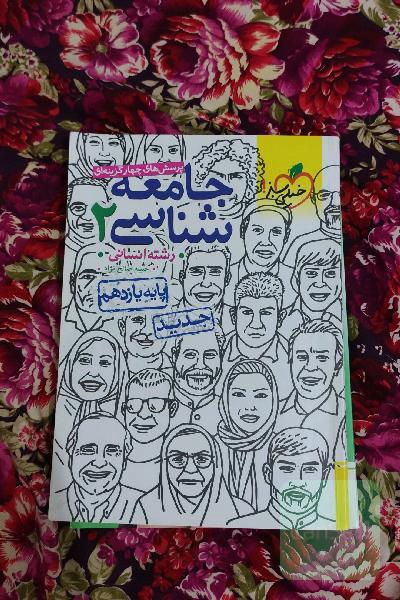 پرسش‌های چهارگزینه‌ای
خیلی سبز
جامعه
شناسی ۲
رشته انسانی
پایه یازدهم
جدید